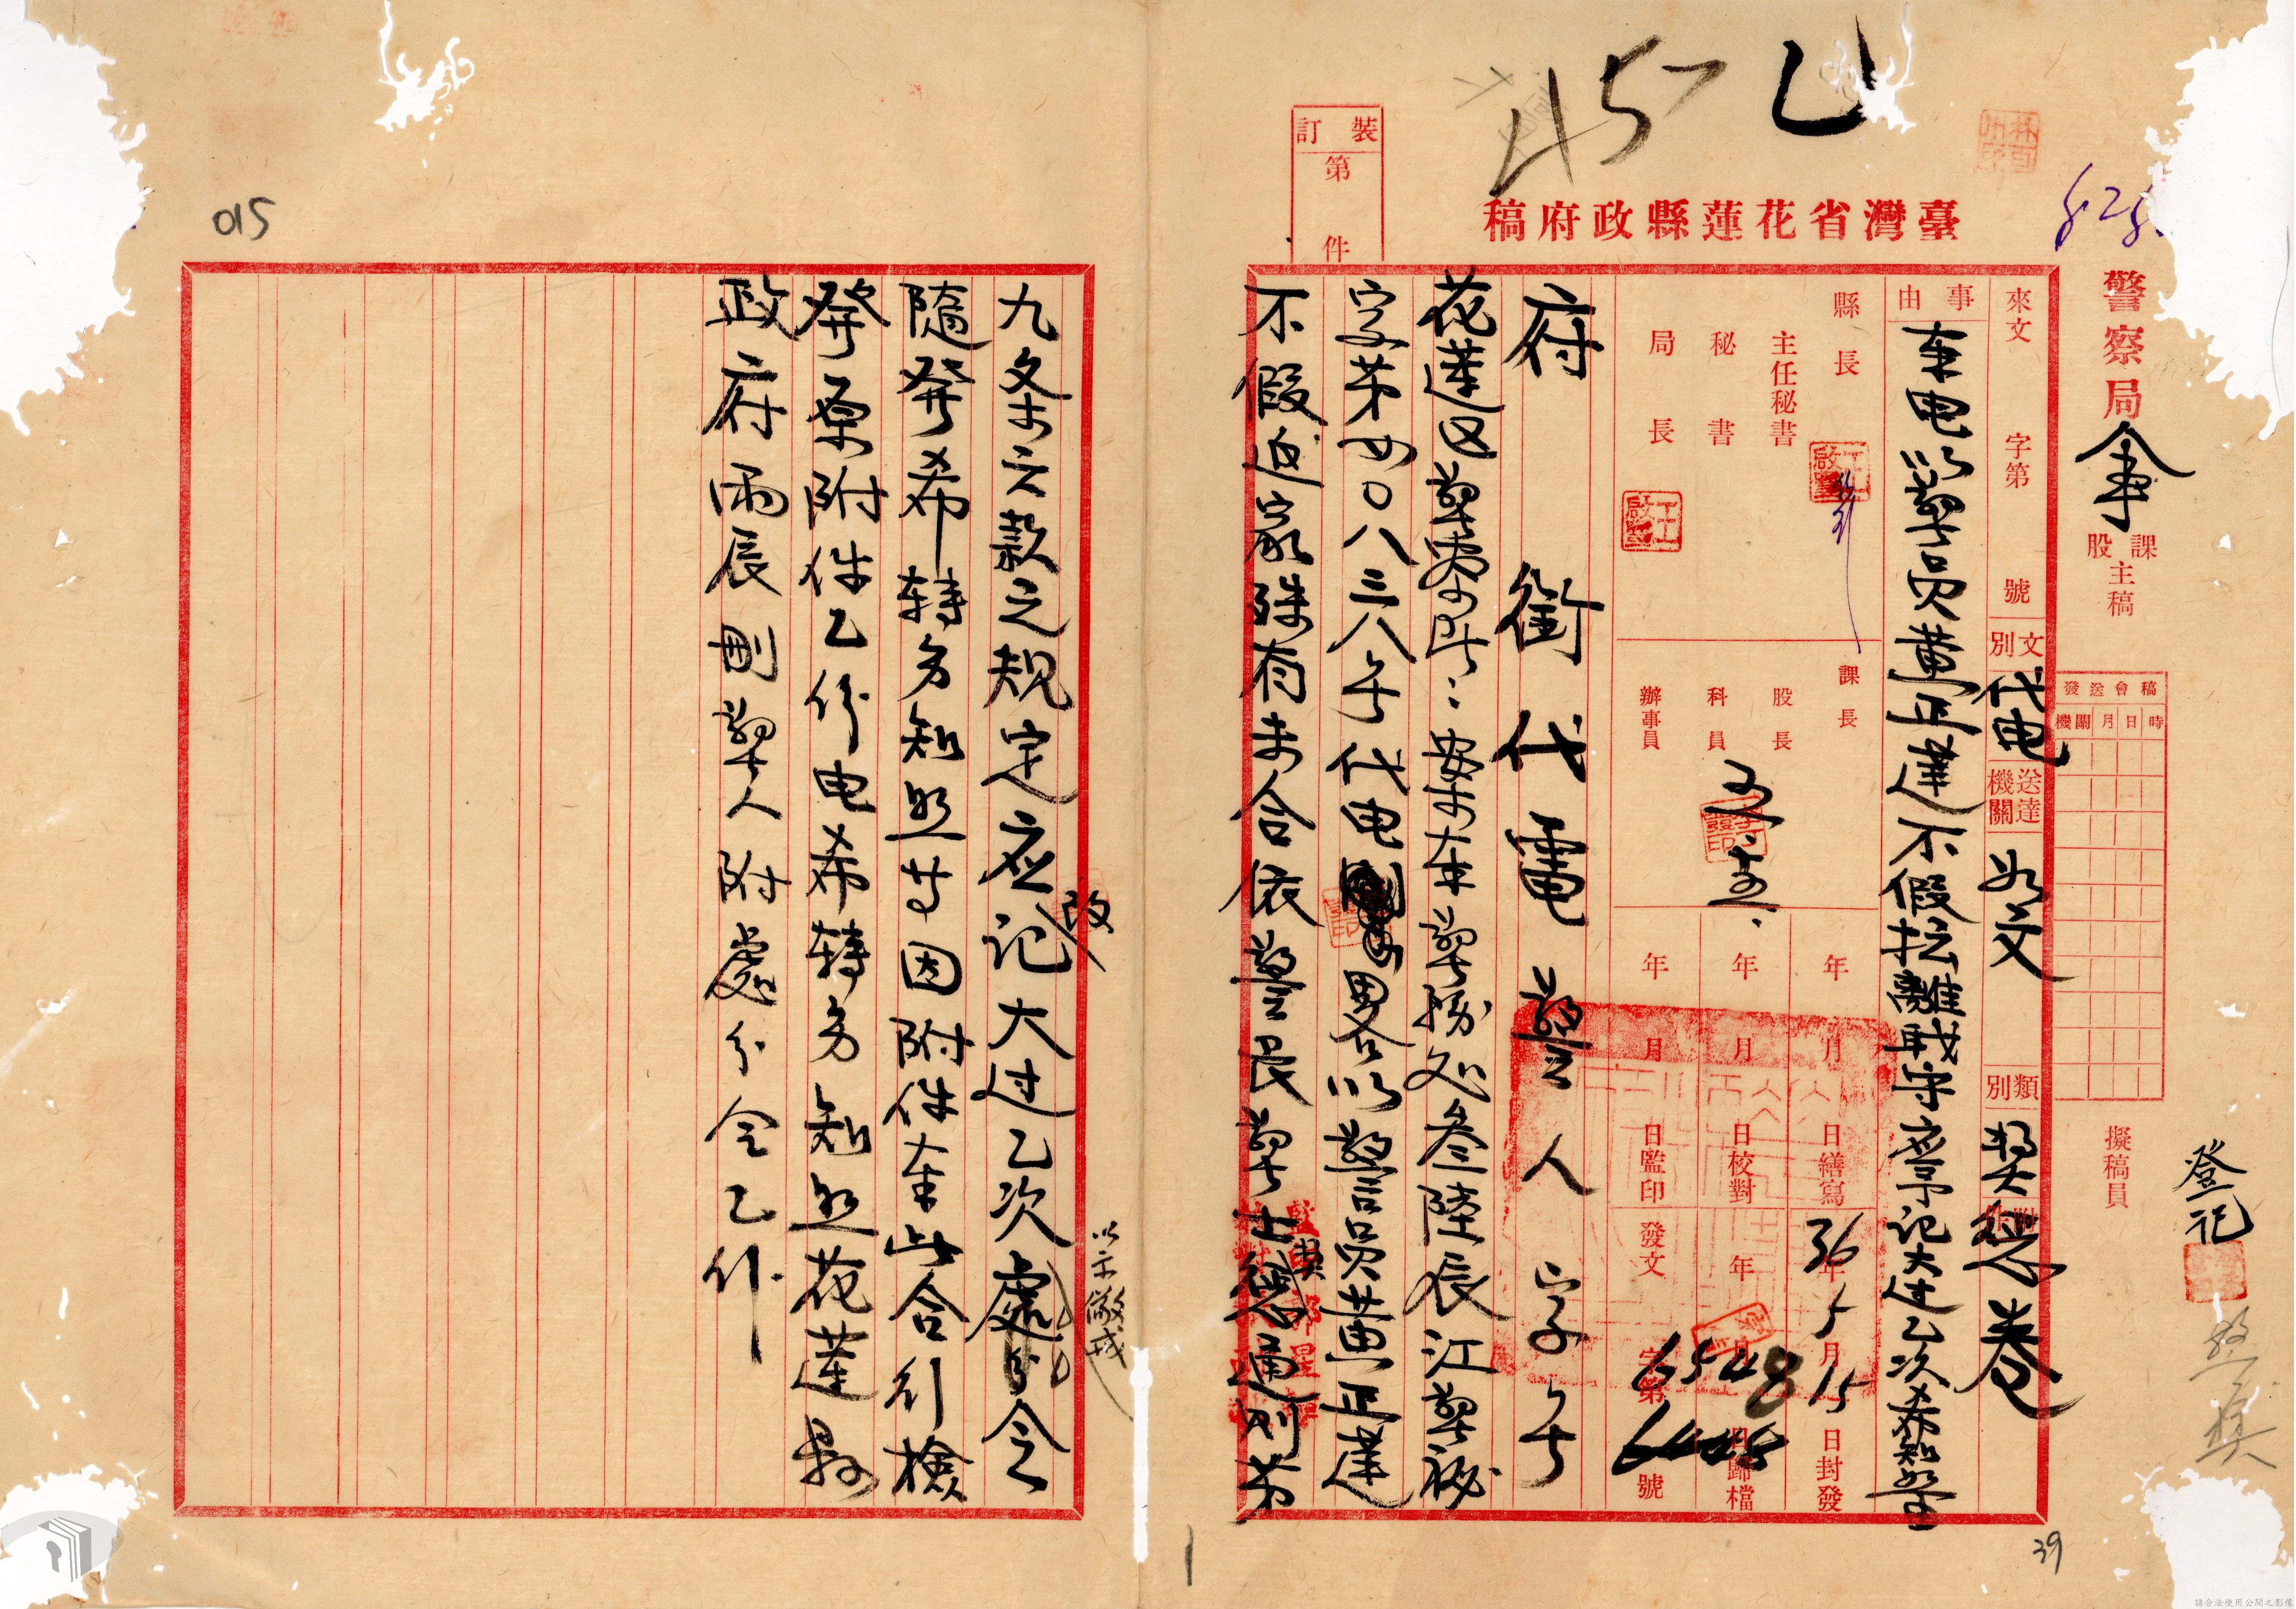 乙
457
臺灣省花蓮縣政府稿
裝訂
第 件
警察局
課
股
主稿
擬稿員
登記
稿會送發
時日月機關
來文 字第 號
文別 代电
送達機關 如文
類別 獎懲卷
事由
奉电以警員黃正達不假擅離職守應予記大过乙次希知照
縣長
主任秘書
秘書
局長
課長
股長
科員
辦事員
年 月 日繕寫
年 月 日校對
年 月 日監印
36年5月15日封發
年 月 日歸檔
發文 字第 6548 號
府銜代電 警人字 号
花蓮区警察所：案奉本警務处叁陸辰江警秘
字第廿〇八三八号代电畧以警員黃正達
不假返家殊有未合依警長警士獎懲通則第
九条六款之規定应記大过乙次處分令
改
以示儆戒
隨發希轉方知照等因附件奉此合行檢
發原附件乙份电希轉方知照花蓮縣
政府丙辰刪警人附處分令乙件
015
39